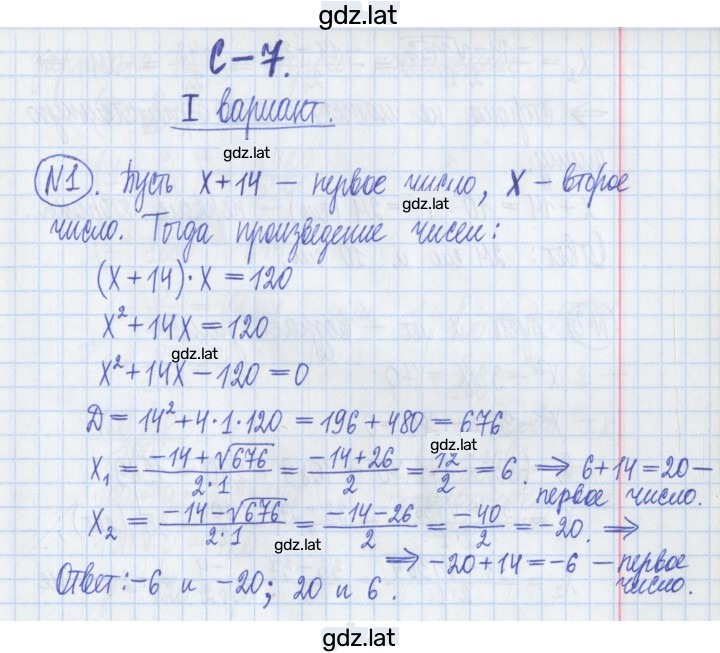 gdz.lat
С-7.
I вариант.
gdz.lat
№1. Пусть x+14 – первое число, x – второе
gdz.lat
число. Тогда произведение чисел:
(x+14)·x=120
x²+14x=120
gdz.lat
x²+14x-120=0
D=14²+4·1·120=196+480=676
gdz.lat
x₁=(-14+√676)/(2·1)=(-14+26)/2=12/2=6. ⇒ 6+14=20 –
первое число.
x₂=(-14-√676)/(2·1)=(-14-26)/2=-40/2=-20. ⇒
gdz.lat
⇒ -20+14=-6 – первое
число.
Ответ: -6 и -20; 20 и 6.
gdz.lat